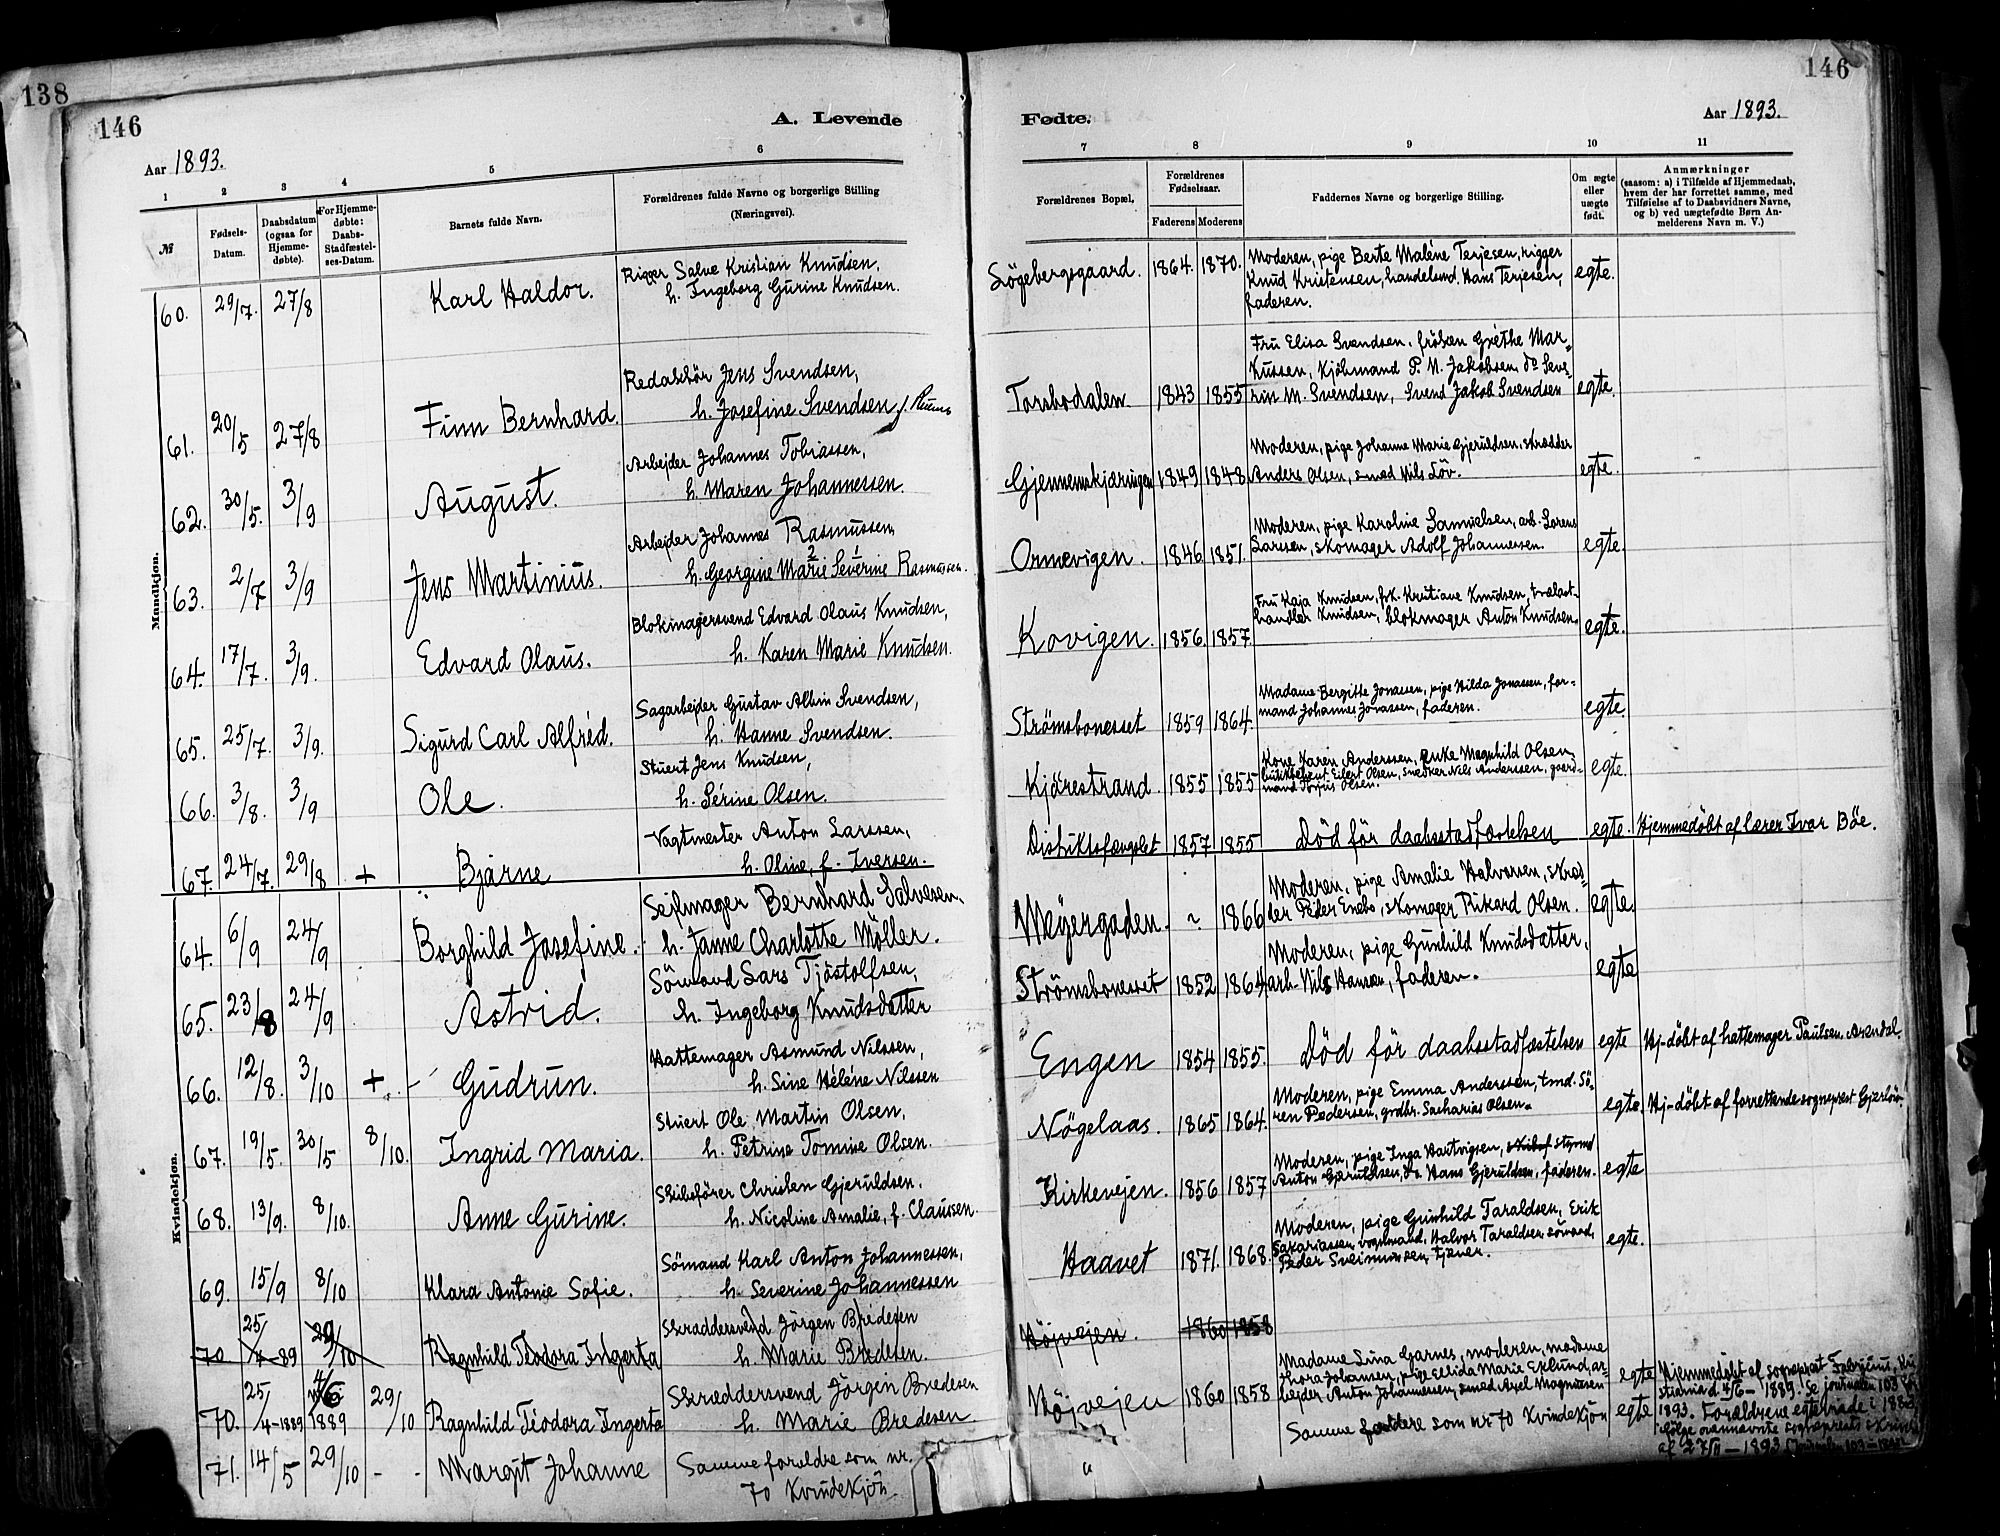 138
146
A. Levende
Aar 1893.
1 2 3 4 5 6
№
Fødsels-Datum.
Daabsdatum (ogsaa for Hjemmedøbte).
For Hjemmedøbte: Daabs-Stadfæstelses-Datum.
Barnets fulde Navn.
Forældrenes fulde Navne og borgerlige Stilling (Næringsvei).
Mandkjøn.
60. 29/7. 27/8 Karl Haldor. Rigger Salve Kristian Knudsen,
h. Ingeborg Gurine Knudsen.
61. 20/5 27/8 Finn Bernhard. Redaktör Jens Svendsen,
h. Josefine Svendsen f.
62. 30/5. 3/9 August. Arbejder Johannes Tobiassen,
h. Maren Johannessen.
63. 2/7 3/9 Jens Martinius. Arbejder Johannes Rasmussen,
h. Georgine Marie 2 Severine 1 Rasmussen.
64. 17/7. 3/9. Edvard Olaus. Blokmagersvend Edvard Olaus Knudsen,
h. Karen Marie Knudsen.
65. 25/7. 3/9. Sigurd Carl Alfred. Sagarbejder Gustav Albin Svendsen,
h. Hanne Svendsen.
66. 3/8. 3/9 Ole. Stuert Jens Knudsen,
h. Serine Olsen.
67. 24/7. 29/8 + Bjarne Vagtmester Anton Larssen,
h. Oline, f. Iversen.
Kvindekjøn.
64. 6/9 24/9 Borghild Josefine. Sejlmager Bernhard Salvesen,
h. Janne Charlotte Möller.
65. 23/8 24/9 Astrid. Sömand Lars Tjöstolfsen,
h. Ingeborg Knudsdatter
66. 12/8. 3/10 + Gudrun. Hattemager Asmund Nilssen,
h. Sine Heléne Nilssen
67. 19/5. 30/5 8/10. Ingrid Maria. Stuert Ole Martin Olsen,
h. Petrine Tomine Olsen.
68. 13/9. 8/10. Anne Gurine. Skibsförer Christen Gjeruldsen,
h. Nicoline Amalie, f. Claussen.
69. 15/9 8/10 Klara Antonie Sofie. Sömand Karl Anton Johannessen,
h. Severine Johannessen
70 25/4-89 29/10 Ragnhild Teodora Ingerta Skraddersvend Jörgen Bredesen
h. Marie Bredesen.
70. 25/4-1889 4/6 1889 29/10 Ragnhild Teodora Ingerta Skræddersvend Jörgen Bredesen
h. Marie Bredesen
71. 14/5 29/10 - - Margit Johanne Samme foreldre som nr.
70 Kvindekjön
146
Fødte.
Aar 1893.
7 8 9 10 11
Forældrenes Bopæl.
Forældrenes Fødselsaar.
Faderens Moderens
Faddernes Navne og borgerlige Stilling.
Om ægte eller uægte født.
Anmærkninger
(saasom: a) i Tilfælde af Hjemmedaab, hvem der har forrettet samme, med Tilføielse af to Daabsvidners Navne, og b) ved uægtefødte Børn Anmelderens Navn m. V.)
Lögebergsgaard. 1864. 1870. Moderen, pige Berte Maléne Terjesen, rigger
Knud Kristensen, handelsmd. Hans Terjesen,
faderen. egte.
Torsbodalen. 1843 1855 Fru Elisa Svendsen, fröken Grethe Mar-
kussen, Kjöbmand P. M. Jakobsen, do Seve-
rin M. Svendsen, Svend Jakob Svendsen egte.
Gjennemskjæringen 1849 1848 Moderen, pige Johanne Marie Gjeruldsen, skrædder
Anders Olsen, smed Nils Löv. egte.
Ormevigen. 1846 1851. Moderen, pige Karoline Samuelsen, arb. Sorens
Larssen, skomager Adolf Johannessen. egte.
Kovigen. 1856 1857. Fru Kaja Knudsen, frk. Kristiane Knudsen, trælast-
handler Knudsen, blokmager Anton Knudsen. egte.
Strömsbonesset 1859 1864. Madame Bergitte Jonassen, pige Hilda Jonassen, for-
mand Johannes Jonassen, faderen. egte.
Kjörestrand. 1855 1855 Kone Karen Anderssen, enke Magnhild Olsen,
Eilert Olsen, snedker Nils Anderssen, gaard-
mand Olsen. egte.
Distriktsfængslet 1857 1855 Död för daabsstadfæstelsen egte. Hjemmedöbt af lærer Ivar Böe.
Meyergaden. ~ 1866 Moderen, pige Amalie Halvorsen, skræd-
der Peder Enebo, skomager Rikard Olsen. egte.
Strömsbonesset 1852 1864 Moderen, pige Gunhild Knudsdatter,
arb. Nils Hansen, faderen. egte
Engen 1854 1855. Död för daabsstadfæstelsen egte Hj-döbt af hattemager Paulsen, Arendal.
Nögelaas. 1865 1864. Moderen, pige Emma Anderssen, tmd. Sö-
ren Pedersen, grdbr. Sacharias Olsen. egte. Hj-döbt af forrettende sogneprest Gjerlöw.
Kirkevejen. 1856 1857 Moderen, pige Inga Hartvigsen, styrmd
Anton Gjeruldsen, do Hans Gjeruldsen, faderen. egte
Haavet 1871. 1868. Moderen, pige Gunhild Taraldsen, Erik
Sakariassen, vognmand, Halvor Taraldsen, sömand,
Peder Sveinunsen, tjener. egte.
Höjvejen. 1860 1858
Höjvejen 1860 1858 Madame Lina Garnes, moderen, madame
Thora Johansen, pige Elida Marie Eklund, ar-
bejder Anton Johannessen, smed Axel Magnussen egte Hjemmedöbt af sogneprest Fabricius, Kri-
stiania d. 4/6 - 1889. Se journalen 103 for
" Samme faddere som nr 70 Kvindekjön egte 1893. Forældrene egteviede i
ifölge ovennævnte sogneprests skrivelse
af 27/11 - 1893